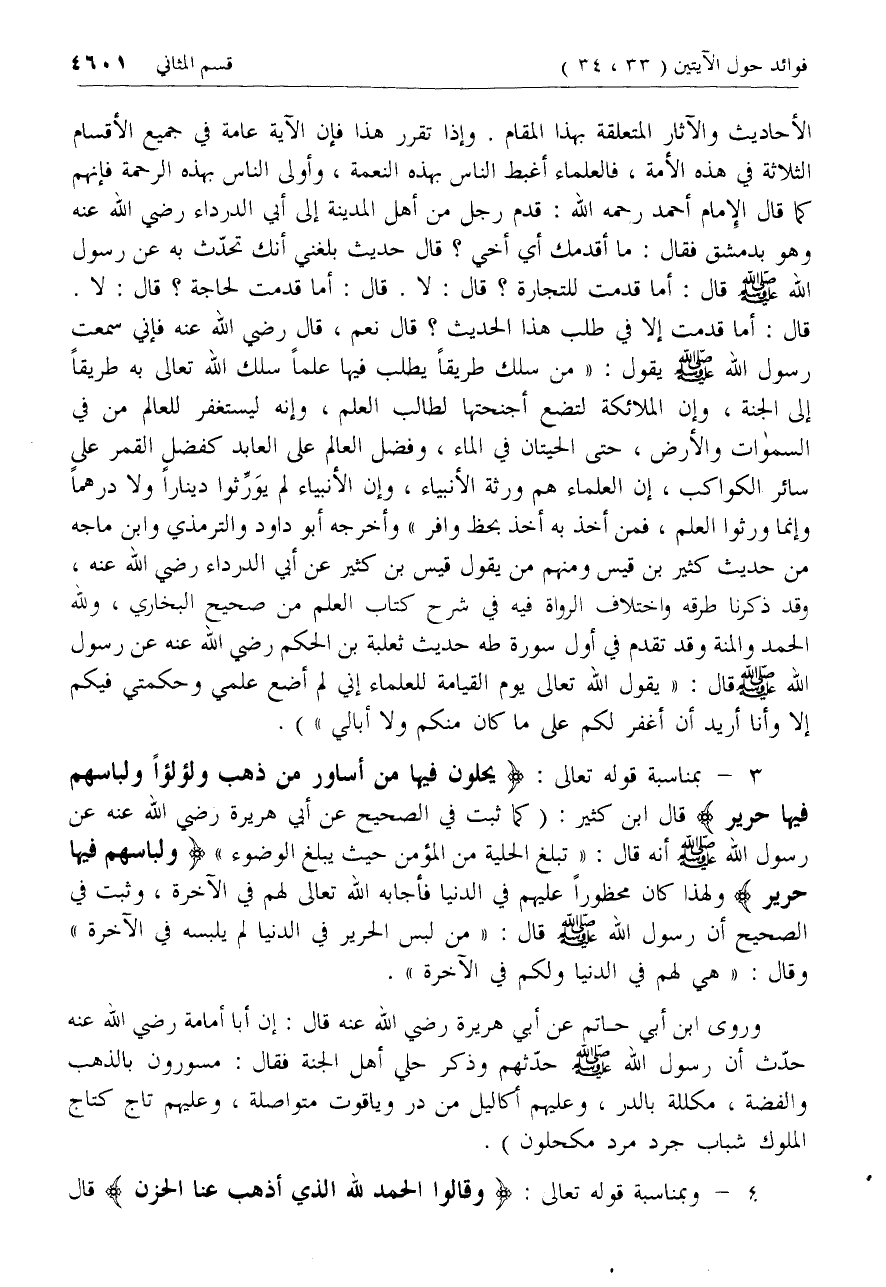 فوائد حول الآيتين ( ٣٣ ، ٣٤ ) قسم المثاني ٤٦٠١
الأحاديث والآثار المتعلقة بهذا المقام . وإذا تقرر هذا فإن الآية عامة في جميع الأقسام
الثلاثة في هذه الأمة ، فالعلماء أغبط الناس بهذه النعمة ، وأولى الناس بهذه الرحمة فإنهم
كما قال الإمام أحمد رحمه الله : قدم رجل من أهل المدينة إلى أبي الدرداء رضي الله عنه
وهو بدمشق فقال : ما أقدمك أي أخي ؟ قال حديث بلغني أنك تحدّث به عن رسول
الله ﷺ قال : أما قدمت للتجارة ؟ قال : لا . قال : أما قدمت لحاجة ؟ قال : لا .
قال : أما قدمت إلا في طلب هذا الحديث ؟ قال نعم ، قال رضي الله عنه فإني سمعت
رسول الله ﷺ يقول : « من سلك طريقاً يطلب فيها علماً سلك الله تعالى به طريقاً
إلى الجنة ، وإن الملائكة لتضع أجنحتها لطالب العلم ، وإنه ليستغفر للعالم من في
السمٰوات والأرض ، حتى الحيتان في الماء ، وفضل العالم على العابد كفضل القمر على
سائر الكواكب ، إن العلماء هم ورثة الأنبياء ، وإن الأنبياء لم يوَرِّثوا ديناراً ولا درهماً
وإنما ورثوا العلم ، فمن أخذ به أخذ بحظ وافر » وأخرجه أبو داود والترمذي وابن ماجه
من حديث كثير بن قيس ومنهم من يقول قيس بن كثير عن أبي الدرداء رضي الله عنه ،
وقد ذكرنا طرقه واختلاف الرواة فيه في شرح كتاب العلم من صحيح البخاري ، ولله
الحمد والمنة وقد تقدم في أول سورة طه حديث ثعلبة بن الحكم رضي الله عنه عن رسول
الله ﷺ قال : « يقول الله تعالى يوم القيامة للعلماء إني لم أضع علمي وحكمتي فيكم
إلا وأنا أريد أن أغفر لكم على ما كان منكم ولا أبالي » ) .
٣ – بمناسبة قوله تعالى : ﴿ يحلون فيها من أساور من ذهب ولؤلؤاً ولباسهم
فيها حرير ﴾ قال ابن كثير : ( كما ثبت في الصحيح عن أبي هريرة رضي الله عنه عن
رسول الله ﷺ أنه قال : « تبلغ الحلية من المؤمن حيث يبلغ الوضوء » ﴿ ولباسهم فيها
حرير ﴾ ولهذا كان محظوراً عليهم في الدنيا فأجابه الله تعالى لهم في الآخرة ، وثبت في
الصحيح أن رسول الله ﷺ قال : « من لبس الحرير في الدنيا لم يلبسه في الآخرة »
وقال : « هي لهم في الدنيا ولكم في الآخرة » .
وروى ابن أبي حاتم عن أبي هريرة رضي الله عنه قال : إن أبا أمامة رضي الله عنه
حدّث أن رسول الله ﷺ حدّثهم وذكر حلي أهل الجنة فقال : مسورون بالذهب
والفضة ، مكللة بالدر ، وعليهم أكاليل من در وياقوت متواصلة ، وعليهم تاج كتاج
الملوك شباب جرد مرد مكحلون ) .
٤ – وبمناسبة قوله تعالى : ﴿ وقالوا الحمد لله الذي أذهب عنا الحزن ﴾ قال